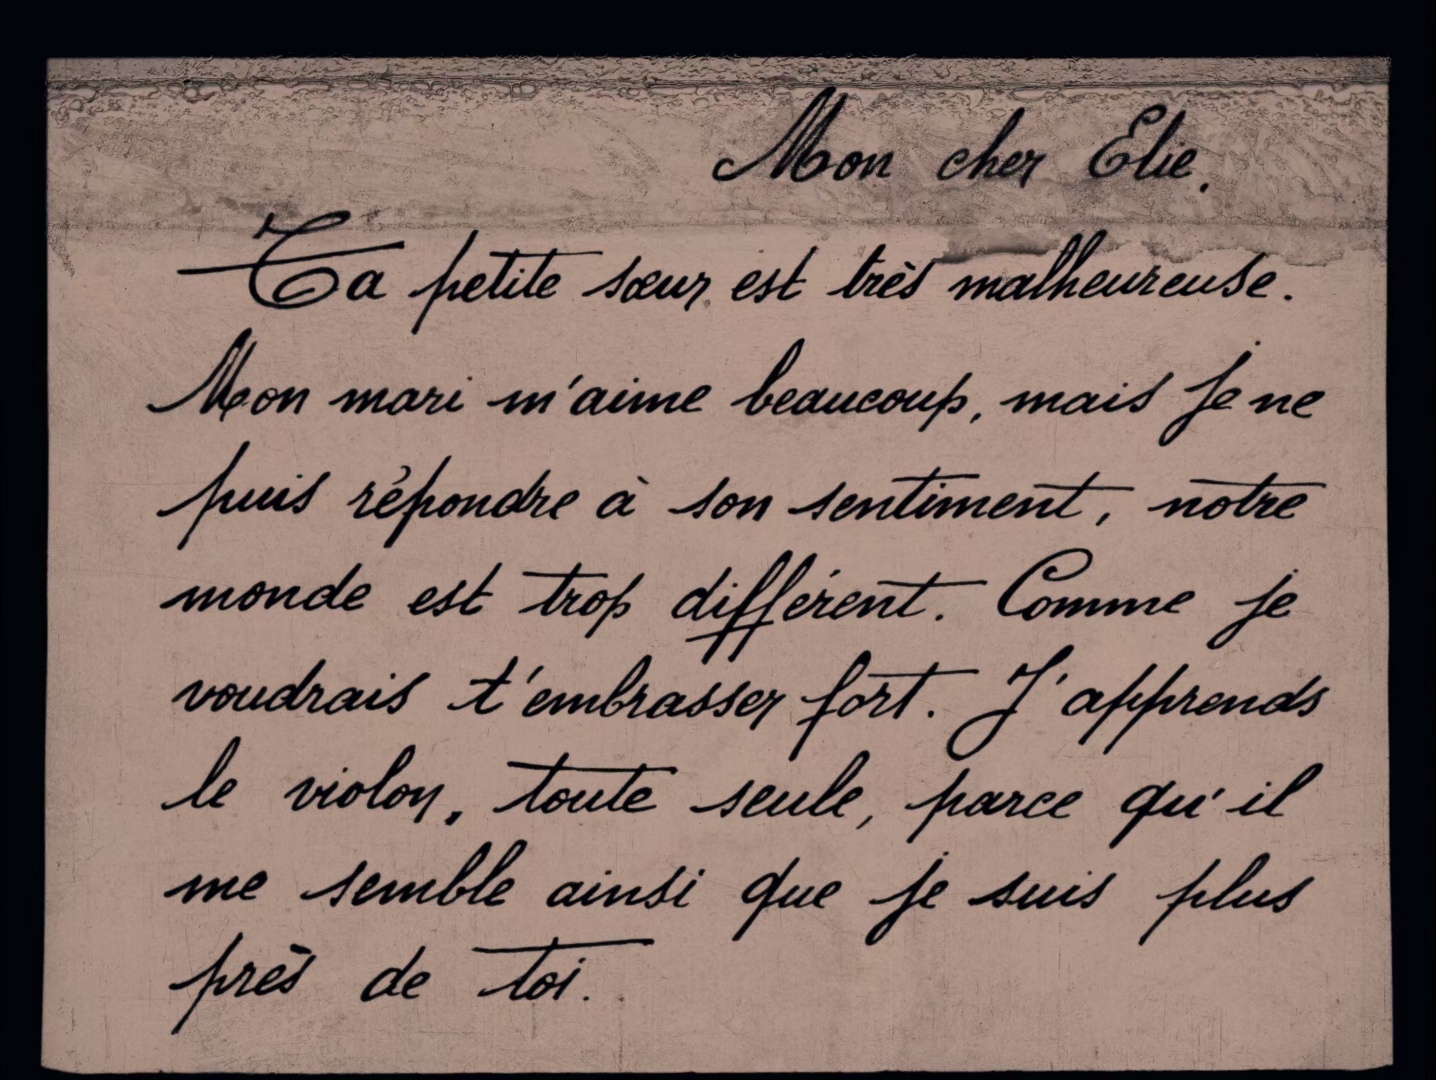 Mon cher Elie.
Ta petite sœur est très malheureuse.
Mon mari m'aime beaucoup, mais je ne
puis répondre à son sentiment, notre
monde est trop différent. Comme je
voudrais t'embrasser fort. J'apprends
le violon, toute seule, parce qu'il
me semble ainsi que je suis plus
près de toi.